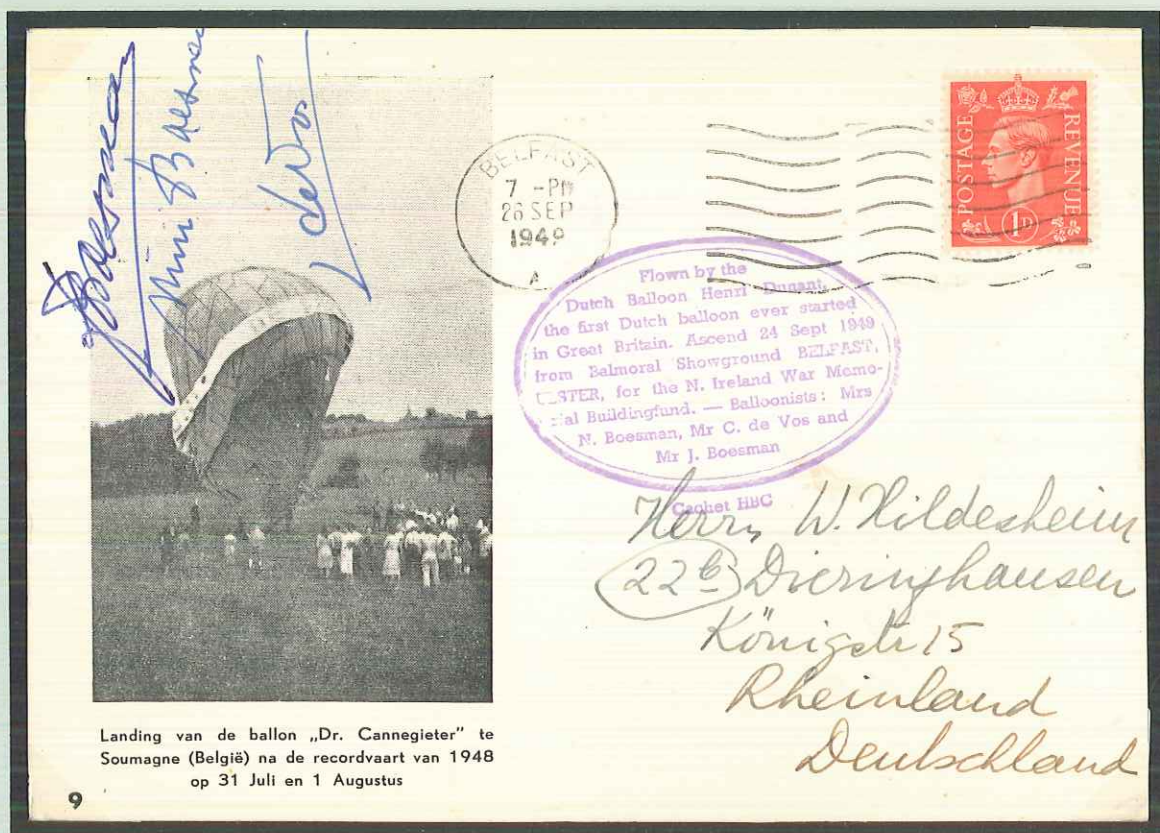 JBoesman
Nini Boesman
deVos
BELFAST
7 -PM
26 SEP
1949
A
POSTAGE
REVENUE
1D
Flown by the
Dutch Balloon Henri Dunant,
the first Dutch balloon ever started
in Great Britain. Ascend 24 Sept 1949
from Balmoral Showground BELFAST,
ULSTER, for the N. Ireland War Memo-
rial Buildingfund. — Balloonists: Mrs
N. Boesman, Mr C. de Vos and
Mr J. Boesman
Cachet HBC
Herrn W. Hildesheim
22b Dieringhausen
Königstr 15
Rheinland
Deutschland
Landing van de ballon „Dr. Cannegieter” te
Soumagne (België) na de recordvaart van 1948
op 31 Juli en 1 Augustus
9